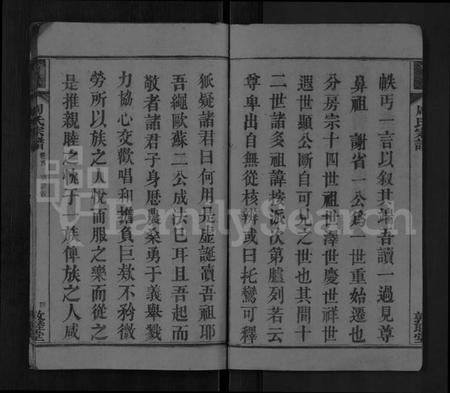 帙丐一言以叙其端吾讀一過見尊
鼻祖 謝省一公為 世重始遷也
分房宗十四世祖世澤世慶世祥世
遐世顯公斷自可允之世也其間十
二世諸多祖諱按派次第臚列若云
尊卑出自無從核辨或曰托鸞可釋
狐疑諸君曰何用是虛誕瀆吾祖耶
吾繩歐蘇二公成法已耳且吾起而
敬者諸君子身歷農桑勇于義舉戮
力協心交歡唱和擔負巨欵不矜微
勞所以族之人悅而服之樂而從之
是推親睦之忱于一族俾族之人咸
周氏宗譜
敦睦堂
FamilySearch